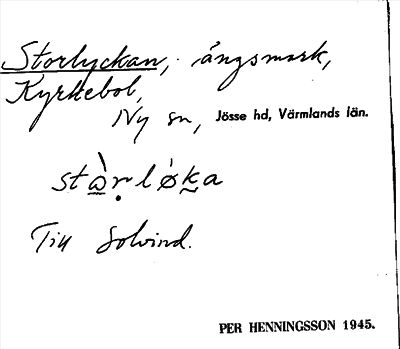 Storlyckan, ängsmark,
Kyrkebol,
Ny sn, Jösse hd, Värmlands län.
stò̲ṛlø̀k̯a
Till Solvind.
PER HENNINGSSON 1945.